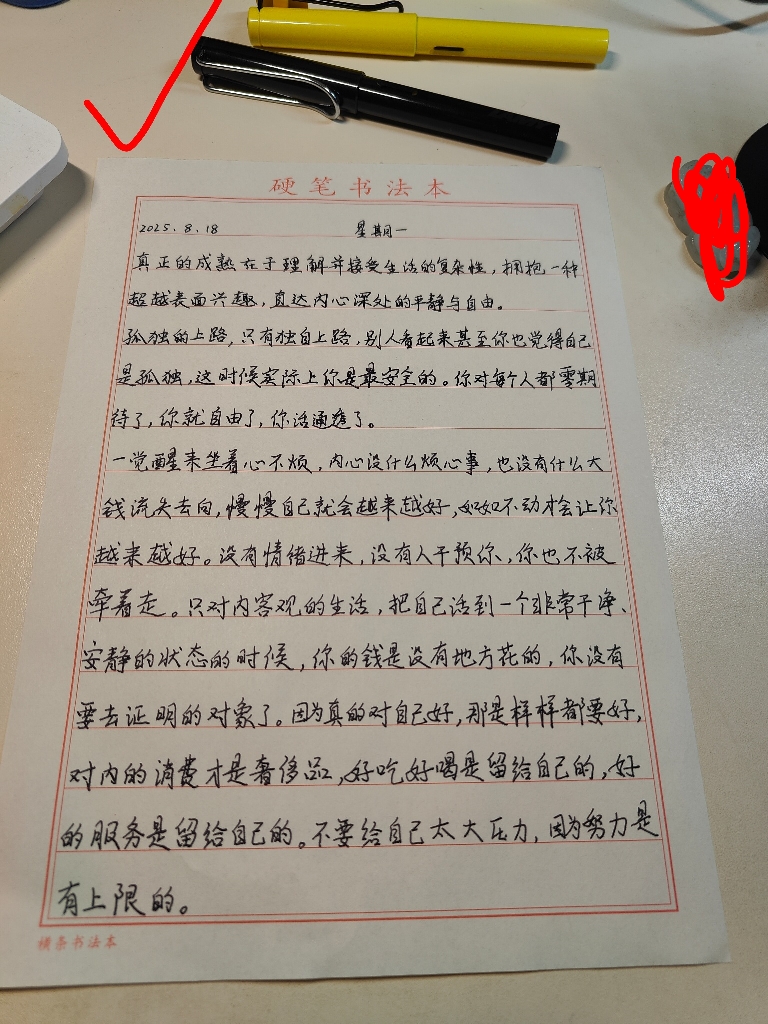 硬笔书法本
2025.8.18 星期一
真正的成熟在于理解并接受生活的复杂性，拥抱一种
超越表面兴趣，直达内心深处的平静与自由。
孤独的上路，只有独自上路，别人看起来甚至你也觉得自己
是孤独，这时候实际上你是最安全的。你对每个人都零期
待了，你就自由了，你活通透了。
一觉醒来坐着心不烦，内心没什么烦心事，也没有什么大
钱流失去向，慢慢自己就会越来越好，如如不动才会让你
越来越好。没有情绪进来，没有人干预你，你也不被
牵着走。只对内客观的生活，把自己活到一个非常干净、
安静的状态的时候，你的钱是没有地方花的，你没有
要去证明的对象了。因为真的对自己好，那是样样都要好，
对内的消费才是奢侈品，好吃好喝是留给自己的，好
的服务是留给自己的。不要给自己太大压力，因为努力是
有上限的。
横条书法本